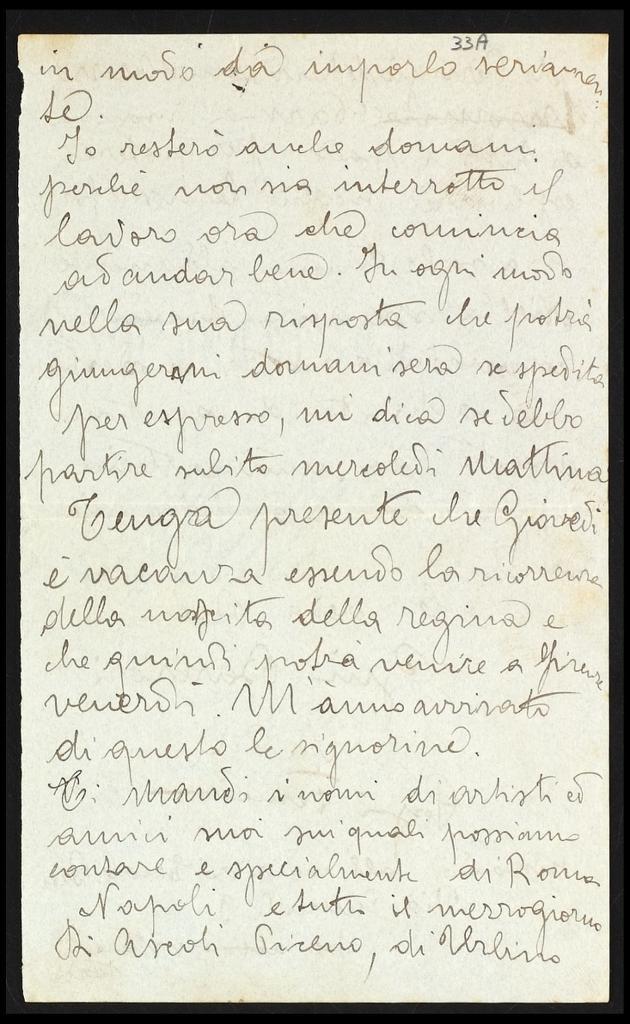 33A
in modo da imporlo seriamen:
te.
Io resterò anche domani
perchè non sia interrotto il
lavoro ora che comincia
ad andar bene. In ogni modo
nella sua risposta che potrà
giungermi domani sera se spedita
per espresso, mi dica se debbo
partire subito mercoledì mattina
Tenga presente che Giovedì
è vacanza essendo la ricorrenza
della nascita della regina e
che quindi potrà venire a Firenze
venerdì. M'ànno avvisato
di questo le signorine.
Ci mandi i nomi di artisti ed
amici suoi sui quali possiamo
contare e specialmente di Roma
Napoli e tutto il mezzogiorno
di Ascoli Piceno, di Urbino